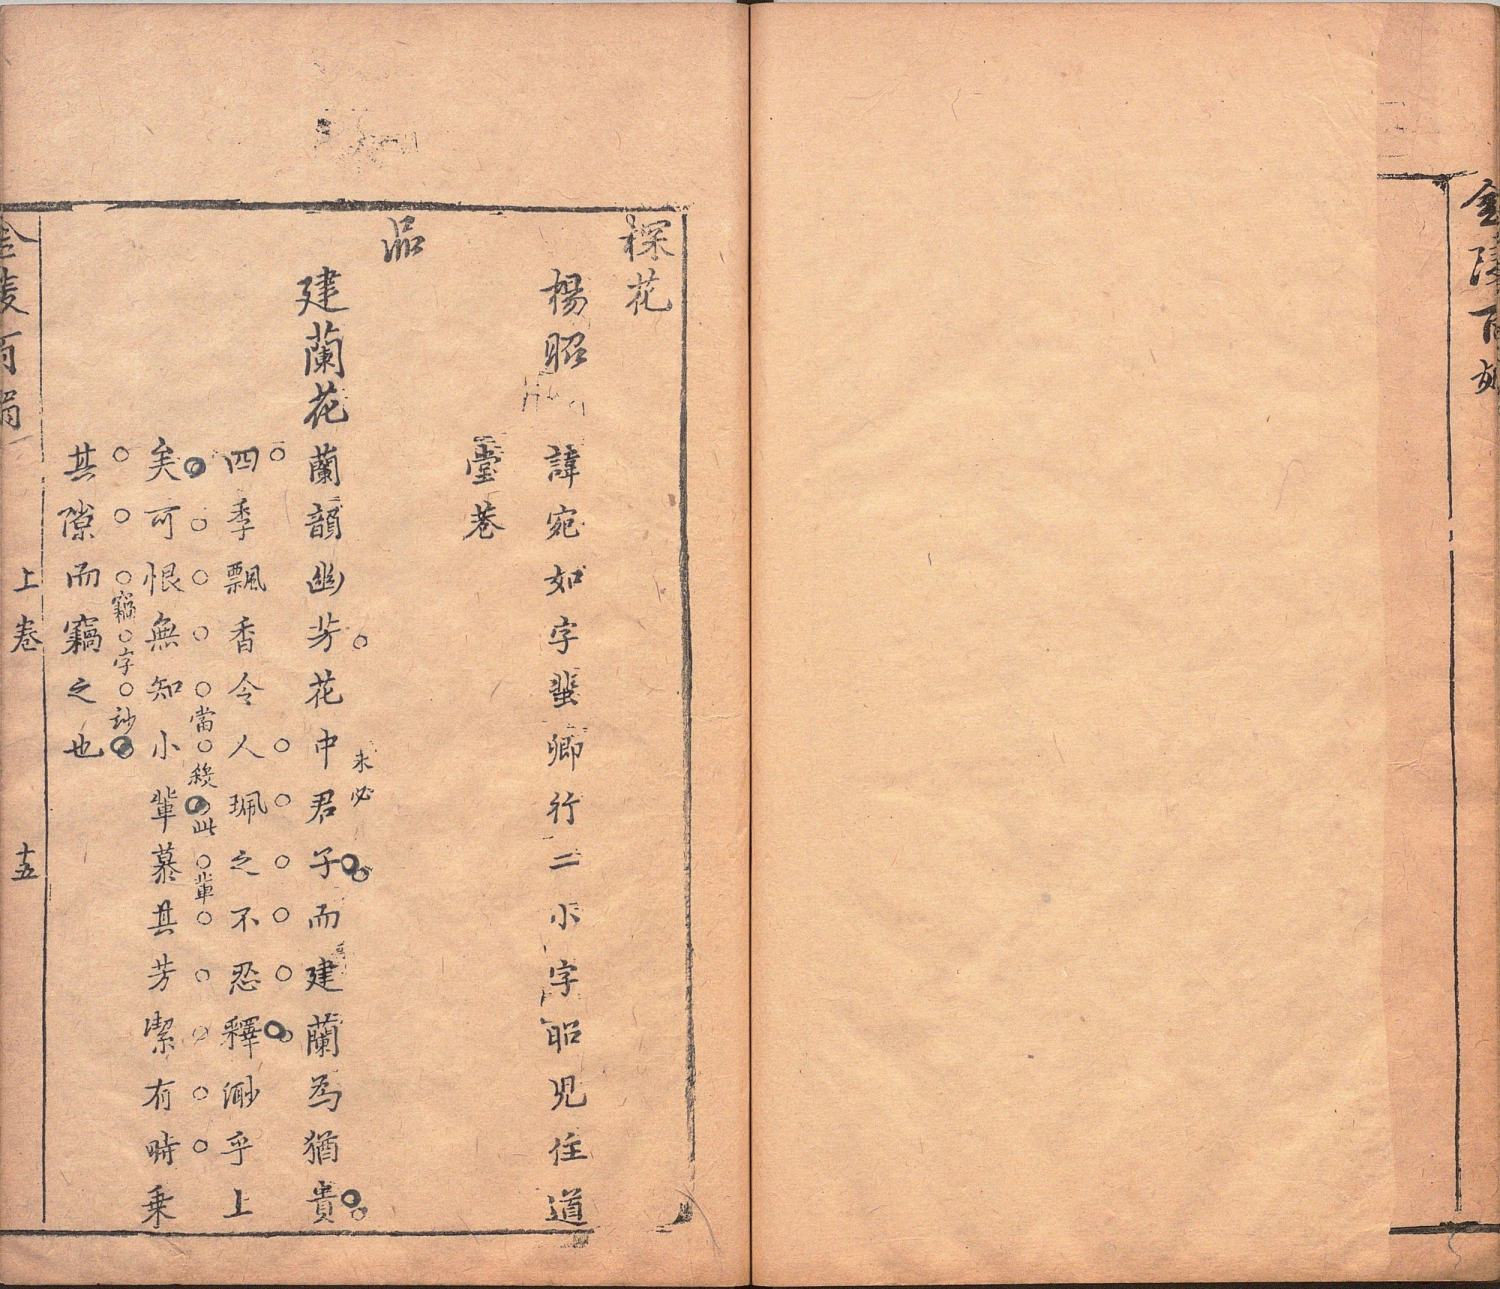 金陵百
探花
楊昭 諱宛如字蜚卿行二小字昭児住道
堂巷
品
建蘭花 蘭韻幽芳花中君子而建蘭為猶貴
未必
四季飄香令人珮之不忍釋緬乎上
矣可恨無知小輩慕其芳潔有時乗
當後此輩
其隙而竊之也
竊字玅
上卷
十五